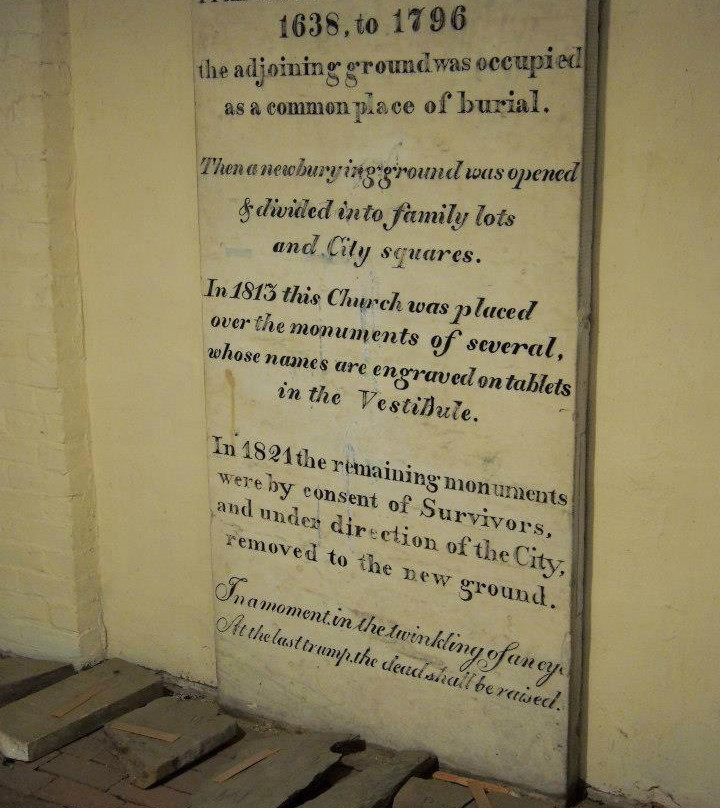 1638, to 1796
the adjoining ground was occupied
as a common place of burial.
Then a new burying ground was opened
& divided into family lots
and City squares.
In 1813 this Church was placed
over the monuments of several,
whose names are engraved on tablets
in the Vestibule.
In 1821 the remaining monuments
were by consent of Survivors,
and under direction of the City,
removed to the new ground.
In a moment, in the twinkling of an eye,
At the last trump, the dead shall be raised.